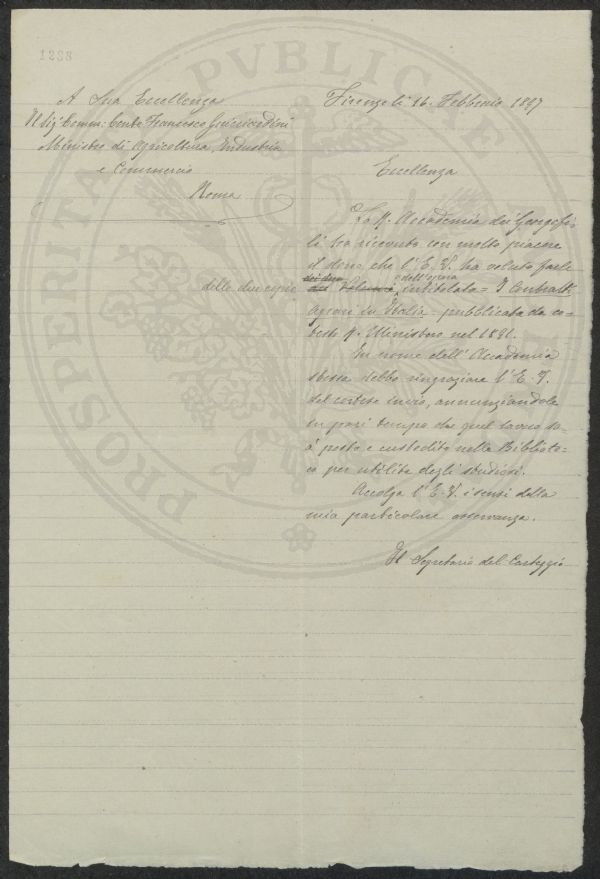 1238
A Sua Eccellenza
Il Sig. Comm: Conte Francesco Guicciardini
Ministro di Agricoltura, Industria
e Commercio
Roma
Firenze li 16. Febbraio 1897
Eccellenza
La R. Accademia dei Georgofi=
li ha ricevuto con molto piacere
il dono che l'E. V. ha voluto farle
delle due copie dell'opera
intitolata = I Contratti
Agrari in Italia = pubblicata da co=
testo R. Ministero nel 1891.
In nome dell'Accademia
stessa debbo ringraziare l'E. V.
del cortese invio, annunziandole
in pari tempo che quel lavoro sa=
rà posto e custodito nella Bibliote=
ca per utilità degli studiosi.
Accolga l'E. V. i sensi della
mia particolare osservanza.
Il Segretario del Carteggio
PROSPERITATI PVBLICAE